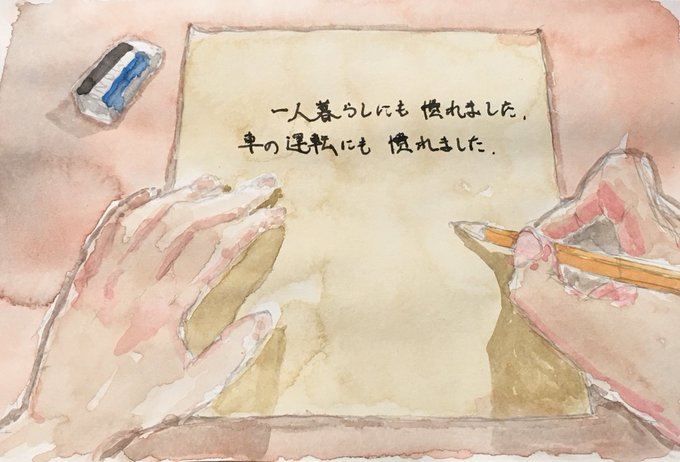 一人暮らしにも 慣れました.
車の運転にも 慣れました.